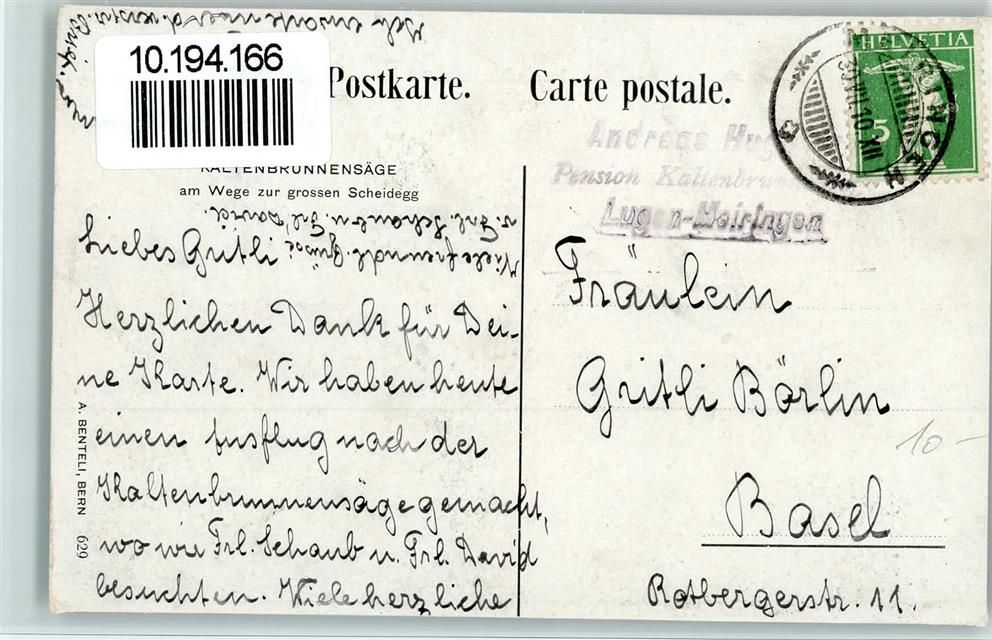 10.194.166
Postkarte. Carte postale.
HELVETIA
5
KALTENBRUNNENSÄGE
am Wege zur grossen Scheidegg
Andreas Hug
Pension Kaltenbrunnen
Lugen-Meiringen
Viele freundl. Grüsse
v. Frl. Schaub u. Frl. David.
Liebes Gritli
Herzlichen Dank für Dei-
ne Karte. Wir haben heute
einen Ausflug nach der
Kaltenbrunnensäge gemacht,
wo wir Frl. Schaub u. Frl. David
besuchten. Viele herzliche
Fräulein
Gritli Börlin
Basel
Rotbergerstr. 11.
10-
A. BENTELI, BERN 629